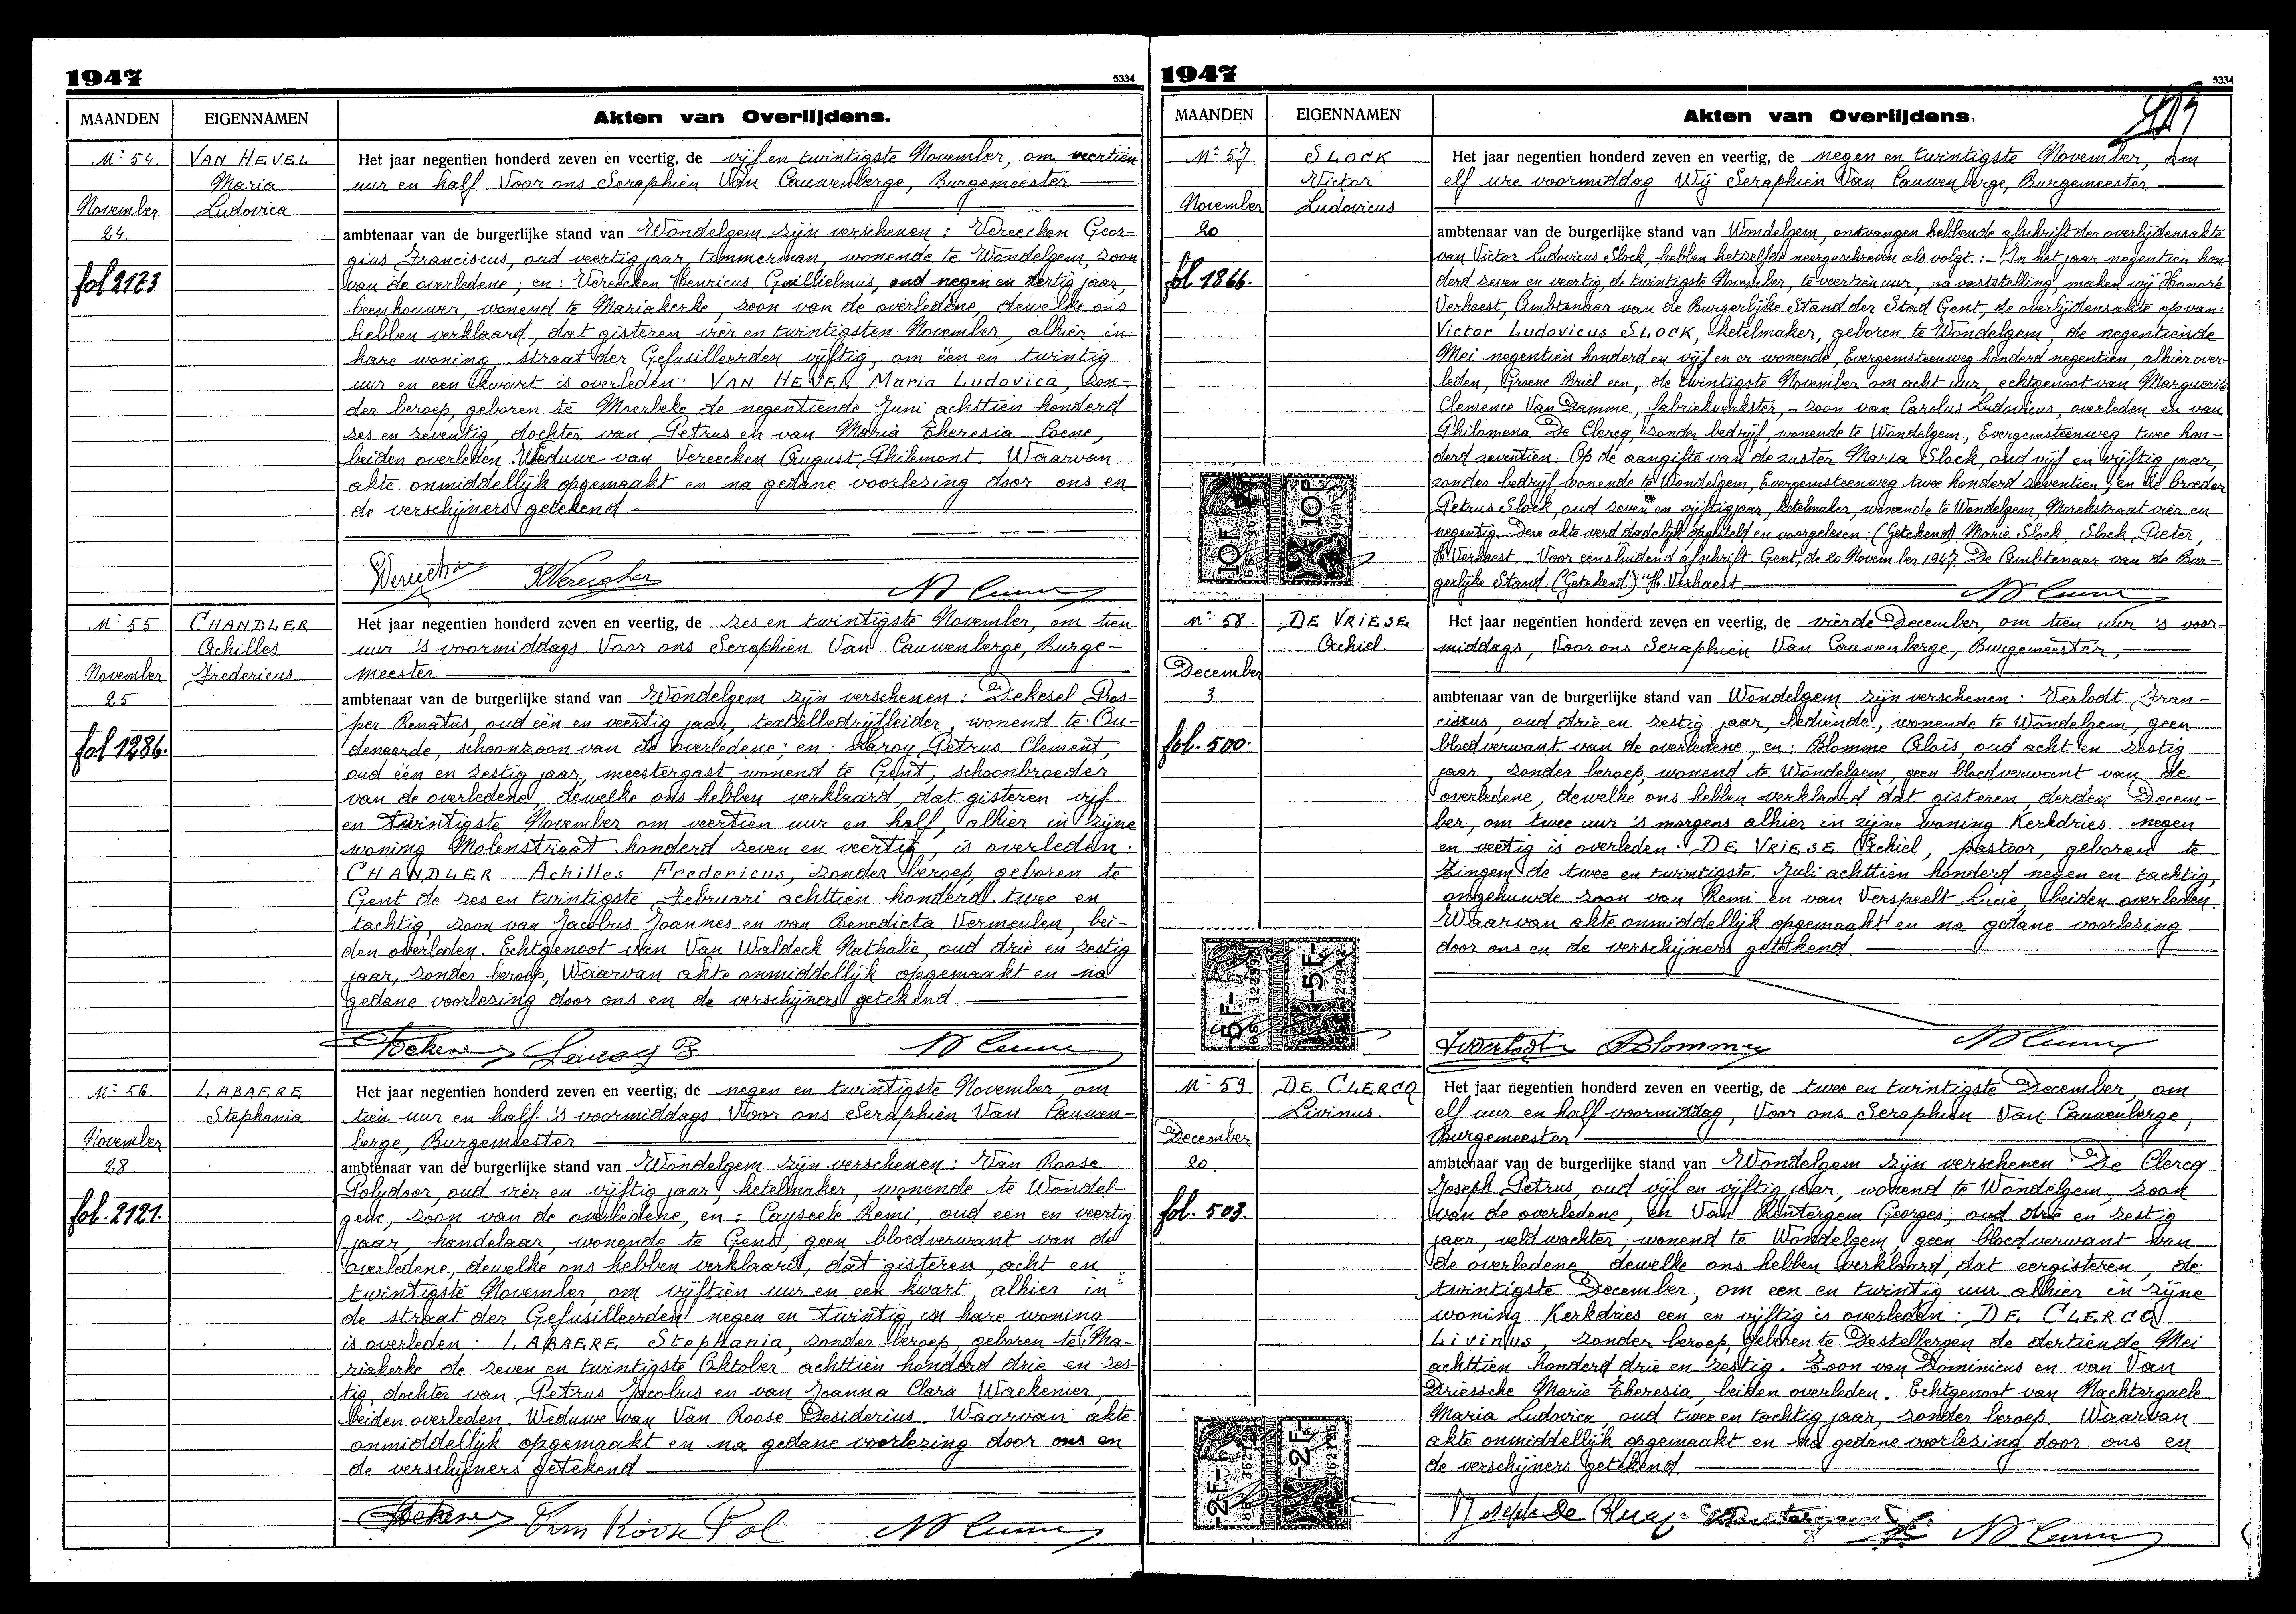 1947
5334
MAANDEN
EIGENNAMEN
Akten van Overlijdens.
No 54.
November
24.
fol 2123
VAN HEVEL
Maria
Ludovica
Het jaar negentien honderd zeven en veertig, de vijf en twintigste November, om veertien
uur en half Voor ons Seraphien Van Cauwenberge, Burgemeester
ambtenaar van de burgerlijke stand van Wondelgem zijn verschenen : Vereecken Geor-
gius Franciscus, oud veertig jaar, timmerman, wonende te Wondelgem, zoon
van de overledene ; en : Vereecken Henricus Guillielmus, oud negen en dertig jaar,
beenhouwer, wonend te Mariakerke, zoon van de overledene, dewelke ons
hebben verklaard, dat gisteren, vier en twintigsten November, alhier in
hare woning straat der Gefusilleerden vijftig, om een en twintig
uur en een kwart is overleden : VAN HEVEL Maria Ludovica, zon-
der beroep, geboren te Moerbeke de negentiende Juni achttien honderd
zes en zeventig, dochter van Petrus en van Maria Theresia Coene,
beiden overleden. Weduwe van Vereecken August Philemont. Waarvan
akte onmiddellijk opgemaakt en na gedane voorlezing door ons en
de verschijners getekend.
No 55
November
25
fol 1286.
CHANDLER
Achilles
Fredericus
Het jaar negentien honderd zeven en veertig, de zes en twintigste November, om tien
uur 's voormiddags Voor ons Seraphien Van Cauwenberge, Burge-
meester
ambtenaar van de burgerlijke stand van Wondelgem zijn verschenen : Dekesel Pros-
per Renatus, oud een en veertig jaar, textielbedrijfleider, wonend te Ou-
denaarde, schoonzoon van de overledene ; en : Laroy Petrus Clement,
oud een en zestig jaar, meestergast, wonend te Gent, schoonbroeder
van de overledene, dewelke ons hebben verklaard, dat gisteren vijf
en twintigste November om veertien uur en half, alhier in zijne
woning Molenstraat honderd zeven en veertig, is overleden :
CHANDLER Achilles Fredericus, zonder beroep, geboren te
Gent de zes en twintigste Februari achttien honderd twee en
tachtig, zoon van Jacobus Joannes en van Benedicta Vermeulen, bei-
den overleden. Echtgenoot van Van Waldeck Nathalie, oud drie en zestig
jaar, zonder beroep, Waarvan akte onmiddellijk opgemaakt en na
gedane voorlezing door ons en de verschijners getekend
No 56.
November
28.
fol. 2121.
LABAERE
Stephania
Het jaar negentien honderd zeven en veertig, de negen en twintigste November, om
tien uur en half 's voormiddags Voor ons Seraphien Van Cauwen-
berge, Burgemeester
ambtenaar van de burgerlijke stand van Wondelgem zijn verschenen : Van Roose
Polydoor, oud vier en vijftig jaar, ketelmaker, wonende te Wondel-
gem, zoon van de overledene, en : Cayseele Remi, oud een en veertig
jaar, handelaar, wonende te Gent, geen bloedverwant van de
overledene, dewelke ons hebben verklaard, dat gisteren, acht en
twintigste November, om vijftien uur en een kwart, alhier in
de straat der Gefusilleerden negen en twintig, in hare woning
is overleden : LABAERE Stephania, zonder beroep, geboren te Ma-
riakerke de zeven en twintigste Oktober achttien honderd drie en zes-
tig, dochter van Petrus Jacobus en van Joanna Clara Waekenier,
beiden overleden. Weduwe van Van Roose Desiderius. Waarvan akte
onmiddellijk opgemaakt en na gedane voorlezing door ons en
de verschijners getekend
Van Roose Pol
1947
5334
MAANDEN
EIGENNAMEN
Akten van Overlijdens.
No 57
November
20
fol 1866.
SLOCK
Victor
Ludovicus
Het jaar negentien honderd zeven en veertig, de negen en twintigste November, om
elf ure voormiddag Wij Seraphien Van Cauwenberge, Burgemeester
ambtenaar van de burgerlijke stand van Wondelgem, ontvangen hebbende afschrift der overlijdensakte
van Victor Ludovicus Slock, hebben hetzelfde neergeschreven als volgt : In het jaar negentien hon
derd zeven en veertig, de twintigste November, te veertien uur, na vaststelling, maken wij Honoré
Verhaest, Ambtenaar van de Burgerlijke Stand der Stad Gent, de overlijdensakte op van :
Victor Ludovicus SLOCK, ketelmaker, geboren te Wondelgem, de negentiende
Mei negentien honderd en vijf en er wonende, Evergemsteenweg honderd negentien, alhier over-
leden, Groene Briel een, de twintigste November om acht uur, echtgenoot van Marguerite
Clemence Van Damme, fabriekwerkster, - zoon van Carolus Ludovicus, overleden en van
Philomena De Clercq, zonder bedrijf, wonende te Wondelgem, Evergemsteenweg twee hon-
derd zeventien. Op de aangifte van de zuster Maria Slock, oud vijf en vijftig jaar,
zonder bedrijf, wonende te Wondelgem, Evergemsteenweg twee honderd zeventien ; en de broeder
Petrus Slock, oud zeven en vijftig jaar, ketelmaker, wonende te Wondelgem, Morekstraat vier en
negentig. Deze akte werd dadelijk opgesteld en voorgelezen : (Getekend) Marie Slock, Slock Pieter,
H. Verhaest. Voor eensluidend afschrift Gent, de 20 November 1947. De Ambtenaar van de Bur-
gerlijke Stand. (Getekend) H. Verhaest.
10F
10F
No 58.
December
3
fol. 500.
DE VRIESE
Achiel.
Het jaar negentien honderd zeven en veertig, de vierde December, om tien uur 's voor-
middags, Voor ons Seraphien Van Cauwenberge, Burgemeester,
ambtenaar van de burgerlijke stand van Wondelgem zijn verschenen : Verlodt Fran-
ciscus, oud drie en zestig jaar, bediende, wonende te Wondelgem, geen
bloedverwant van de overledene, en : Blomme Aloïs, oud acht en zestig
jaar, zonder beroep, wonend te Wondelgem, geen bloedverwant van de
overledene, dewelke ons hebben verklaard dat gisteren, derden Decem-
ber, om twee uur 's morgens alhier in zijne woning Kerkdries negen
en veertig is overleden : DE VRIESE Achiel, pastoor, geboren te
Zingem de twee en twintigste Juli achttien honderd negen en tachtig,
ongehuwde zoon van Remi en van Verspeelt Lucie, beiden overleden.
Waarvan akte onmiddellijk opgemaakt en na gedane voorlezing
door ons en de verschijners getekend.
5F-
-5F-
No 59.
December
20.
fol. 503.
DE CLERCQ
Livinus.
Het jaar negentien honderd zeven en veertig, de twee en twintigste December, om
elf uur en half voormiddag, Voor ons Seraphien Van Cauwenberge,
Burgemeester
ambtenaar van de burgerlijke stand van Wondelgem zijn verschenen : De Clercq
Joseph Petrus, oud vijf en vijftig jaar, wonend te Wondelgem, zoon
van de overledene, en Van Rentergem Georges, oud drie en zestig
jaar, veldwachter, wonend te Wondelgem, geen bloedverwant van
de overledene, dewelke ons hebben verklaard, dat eergisteren, de
twintigste December, om een en twintig uur alhier in zijne
woning Kerkdries een en vijftig is overleden : DE CLERCQ
Livinus, zonder beroep, geboren te Destelbergen de dertiende Mei
achttien honderd drie en zestig. Zoon van Dominicus en van Van
Driessche Marie Theresia, beiden overleden. Echtgenoot van Nachtergaele
Maria Ludovica, oud twee en tachtig jaar, zonder beroep. Waarvan
akte onmiddellijk opgemaakt en na gedane voorlezing door ons en
de verschijners getekend.
-2F-
-2F-